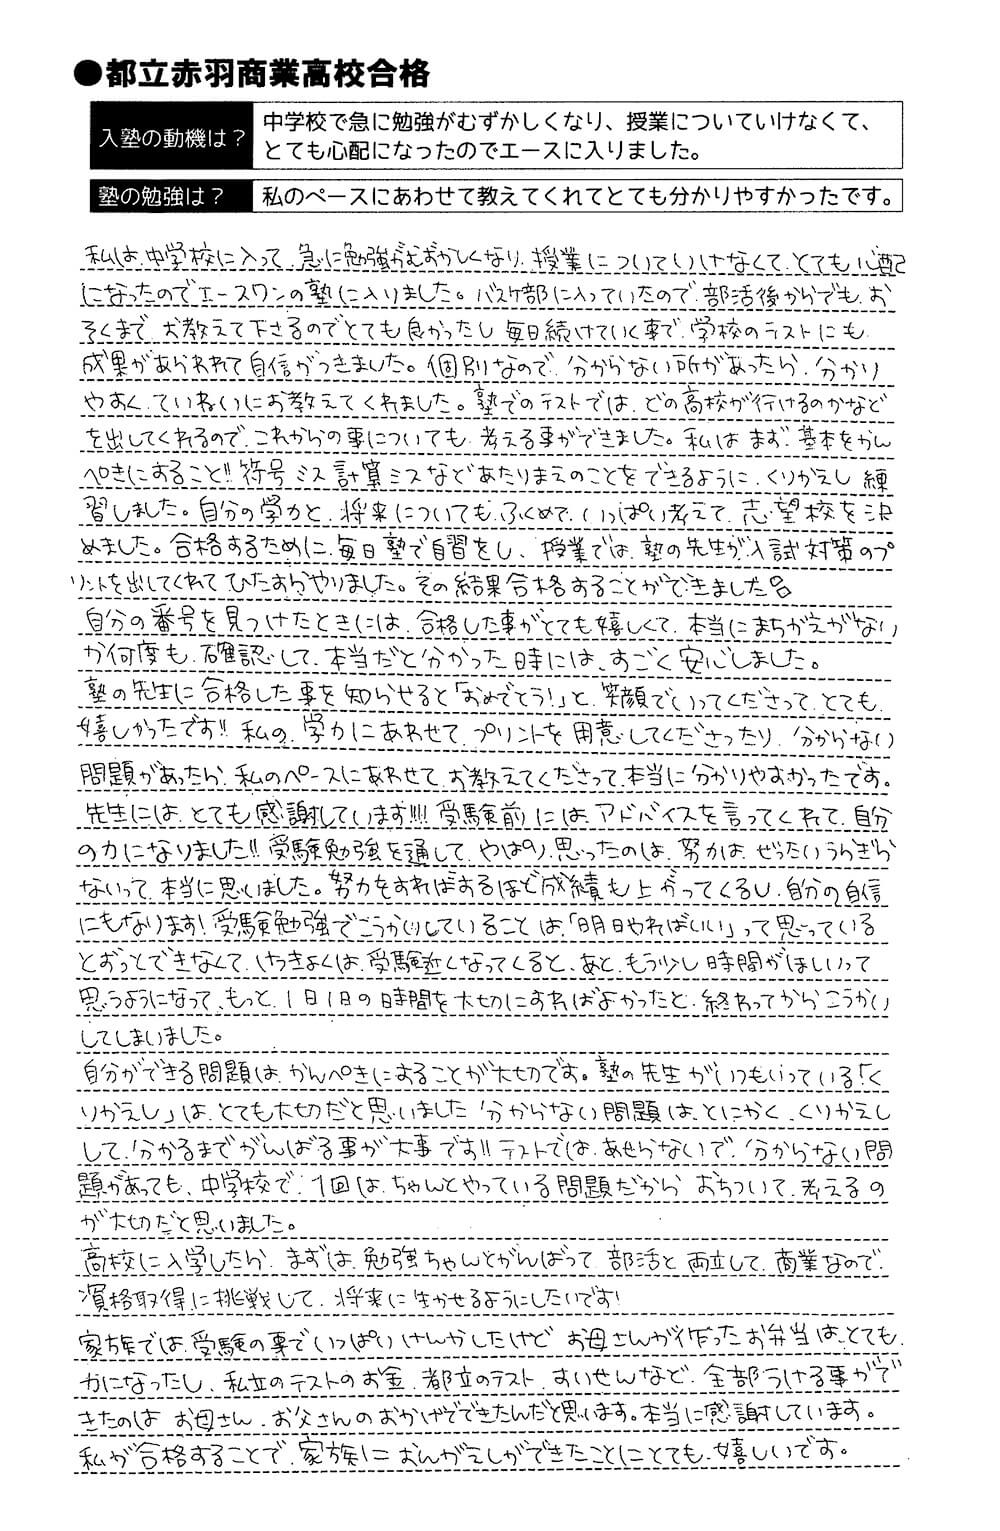 ●都立赤羽商業高校合格
入塾の動機は？
中学校で急に勉強がむずかしくなり、授業についていけなくて、
とても心配になったのでエースに入りました。
塾の勉強は？
私のペースにあわせて教えてくれてとても分かりやすかったです。
私は、中学校に入って、急に勉強がむずかしくなり、授業についていけなくて、とても心配
になったのでエースワンの塾に入りました。バスケ部に入っていたので、部活後からでも、お
そくまで、お教えて下さるのでとても良かったし、毎日続けていく事で、学校のテストにも、
成果があらわれて自信がつきました。個別なので、分からない所があったら、分かり
やすく、ていねいにお教えてくれました。塾でのテストでは、どの高校が行けるのかなど
を出してくれるので、これからの事についても、考える事ができました。私は、まず、基本をかん
ぺきにすること!!符号ミス、計算ミスなどあたりまえのことをできるように、くりかえし練
習しました。自分の学力と、将来についても、ふくめて、いっぱい考えて、志望校を決
めました。合格するために、毎日塾で自習をし、授業では、塾の先生が、入試対策のプ
リントを出してくれてひたすらやりました。その結果合格することができました
自分の番号を見つけたときには、合格した事がとても嬉しくて、本当にまちがえがない
か何度も、確認して、本当だと分かった時には、すごく安心しました。
塾の先生に合格した事を知らせると「おめでとう!」と、笑顔でいってくださって、とても、
嬉しかったです!!私の、学力にあわせて、プリントを用意してくださったり、分からない
問題があったら、私のペースにあわせて、お教えてくださって、本当に分かりやすかったです。
先生には、とても感謝しています!!!!受験前には、アドバイスを言ってくれて、自分
の力になりました!!受験勉強を通して、やぱり、思ったのは、努力は、ぜったいうらぎら
ないって、本当に思いました。努力をすればするほど成績も上がってくるし、自分の自信
にもなります!受験勉強でこうかいしていることは、「明日やればいい」って思っている
とずっとできなくて、けっきょくは、受験近くなってくると、あと、もう少し時間がほしいって
思うようになって、もっと、1日1日の時間を大切にすればよかったと、終わってからこうかい
してしまいました。
自分ができる問題は、かんぺきにすることが大切です。塾の先生がいつもいっている「く
りかえし」は、とても大切だと思いました 分からない問題は、とにかく、くりかえし
して、分かるまでがんばる事が大事です!!テストでは、あせらないで、分からない問
題があっても、中学校で、1回は、ちゃんとやっている問題だから おちついて、考えるの
が大切だと思いました。
高校に入学したら、まずは、勉強ちゃんとがんばって、部活と両立して、商業なので、
資格取得に挑戦して、将来に生かせるようにしたいです!
家族では、受験の事でいっぱいけんかしたけど お母さんが作ったお弁当は、とても、
力になったし、私立のテストのお金、都立のテスト、すいせんなど、全部うける事がで
きたのは お母さん、お父さんのおかげでできたんだと思います。本当に感謝しています。
私が合格することで、家族に おんがえしができたことにとても、嬉しいです。